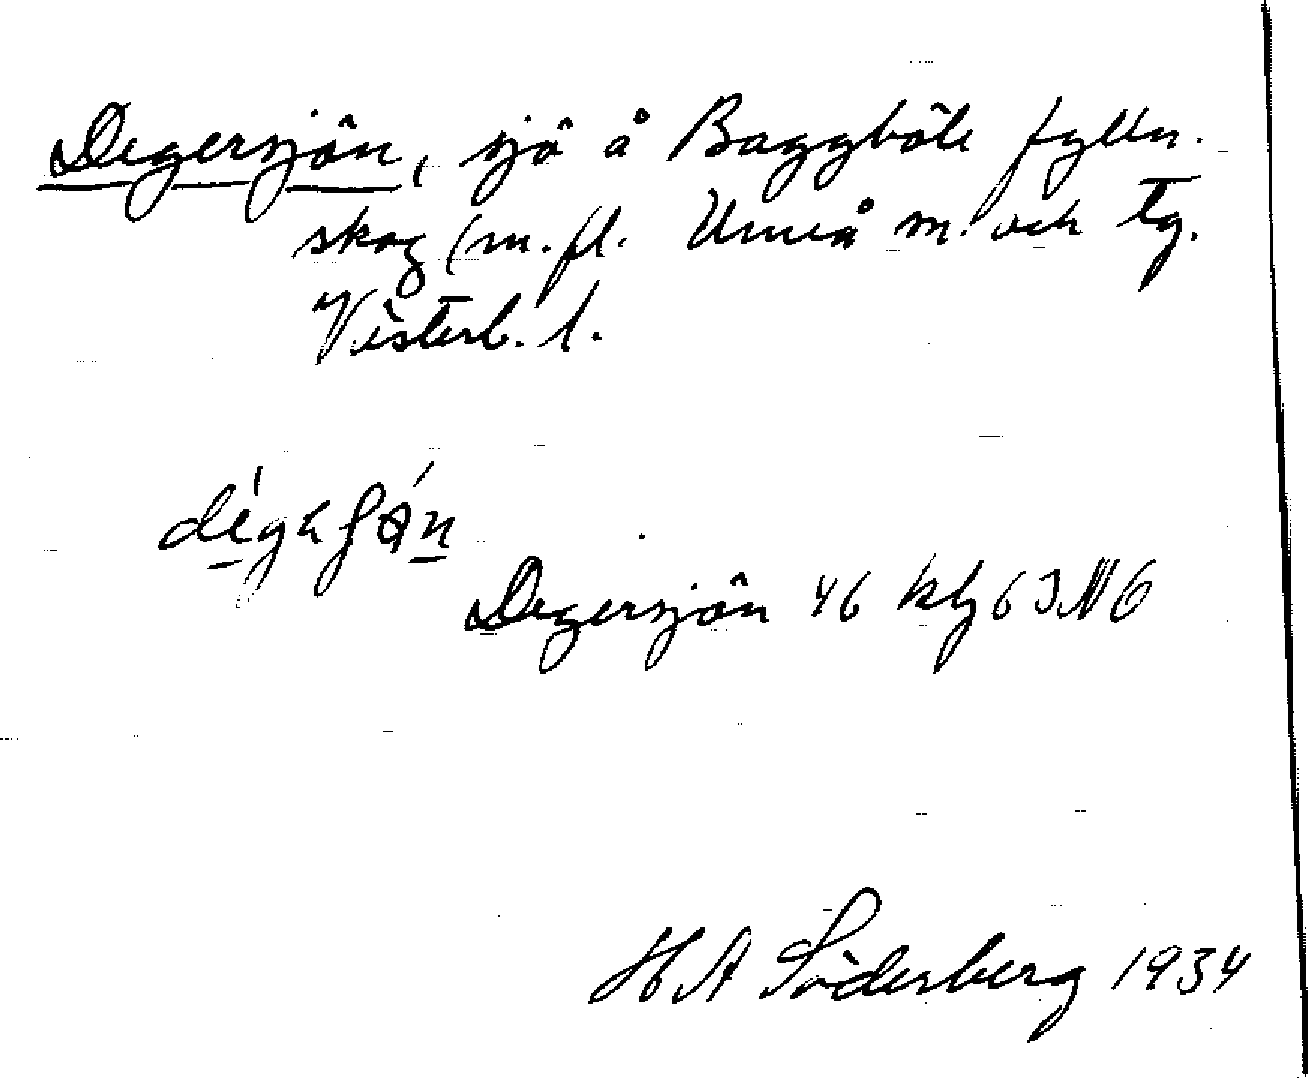 Degersjön, sjö å Baggböle fylln.
skog (m.fl. Umeå m. och tg.
Västerb. l.
Degersjön 46 kbg 6 J N 6
H A Söderberg 1934